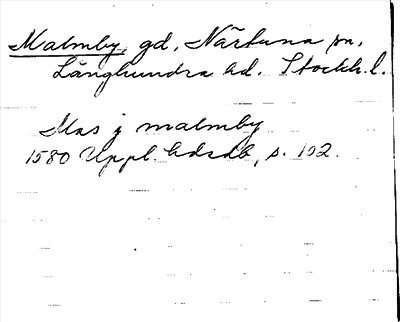 Malmby, gd, Närtuna sn,
Långhundra hd. Stockh. l.
Mas j malmby
1580 Uppl. hdrdb, s. 102.